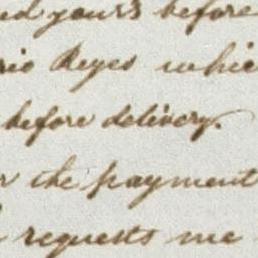 yours before
Reyes
before delivery.
the payment
requests me